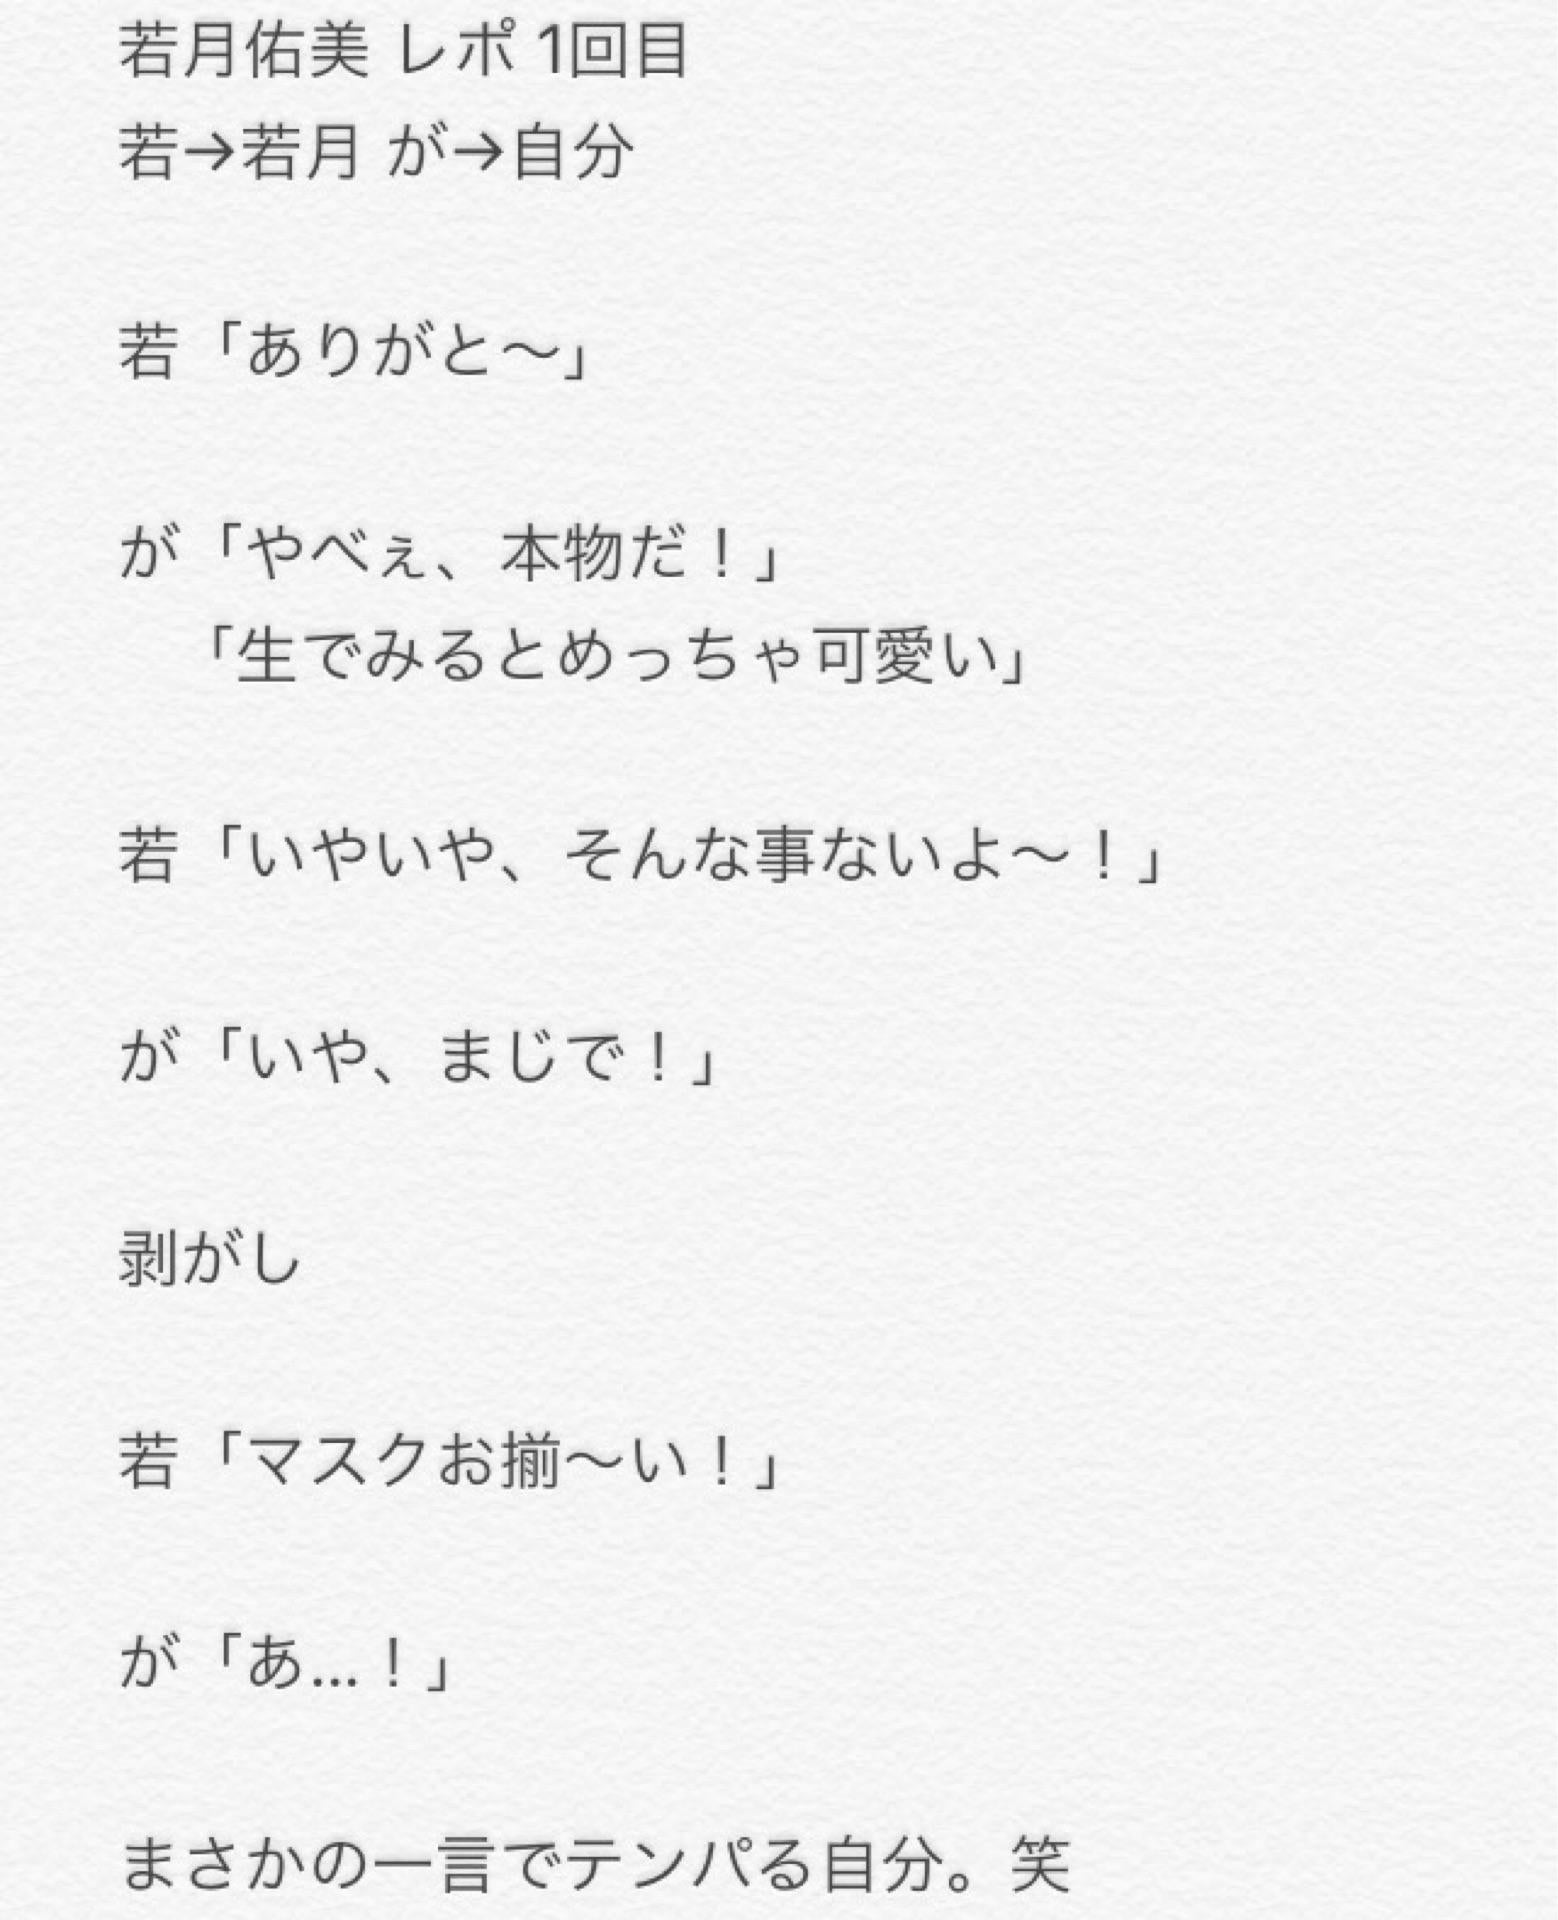 若月佑美 レポ 1回目
若→若月 が→自分
若「ありがと〜」
が「やべぇ、本物だ！」
「生でみるとめっちゃ可愛い」
若「いやいや、そんな事ないよ〜！」
が「いや、まじで！」
剥がし
若「マスクお揃〜い！」
が「あ...！」
まさかの一言でテンパる自分。笑